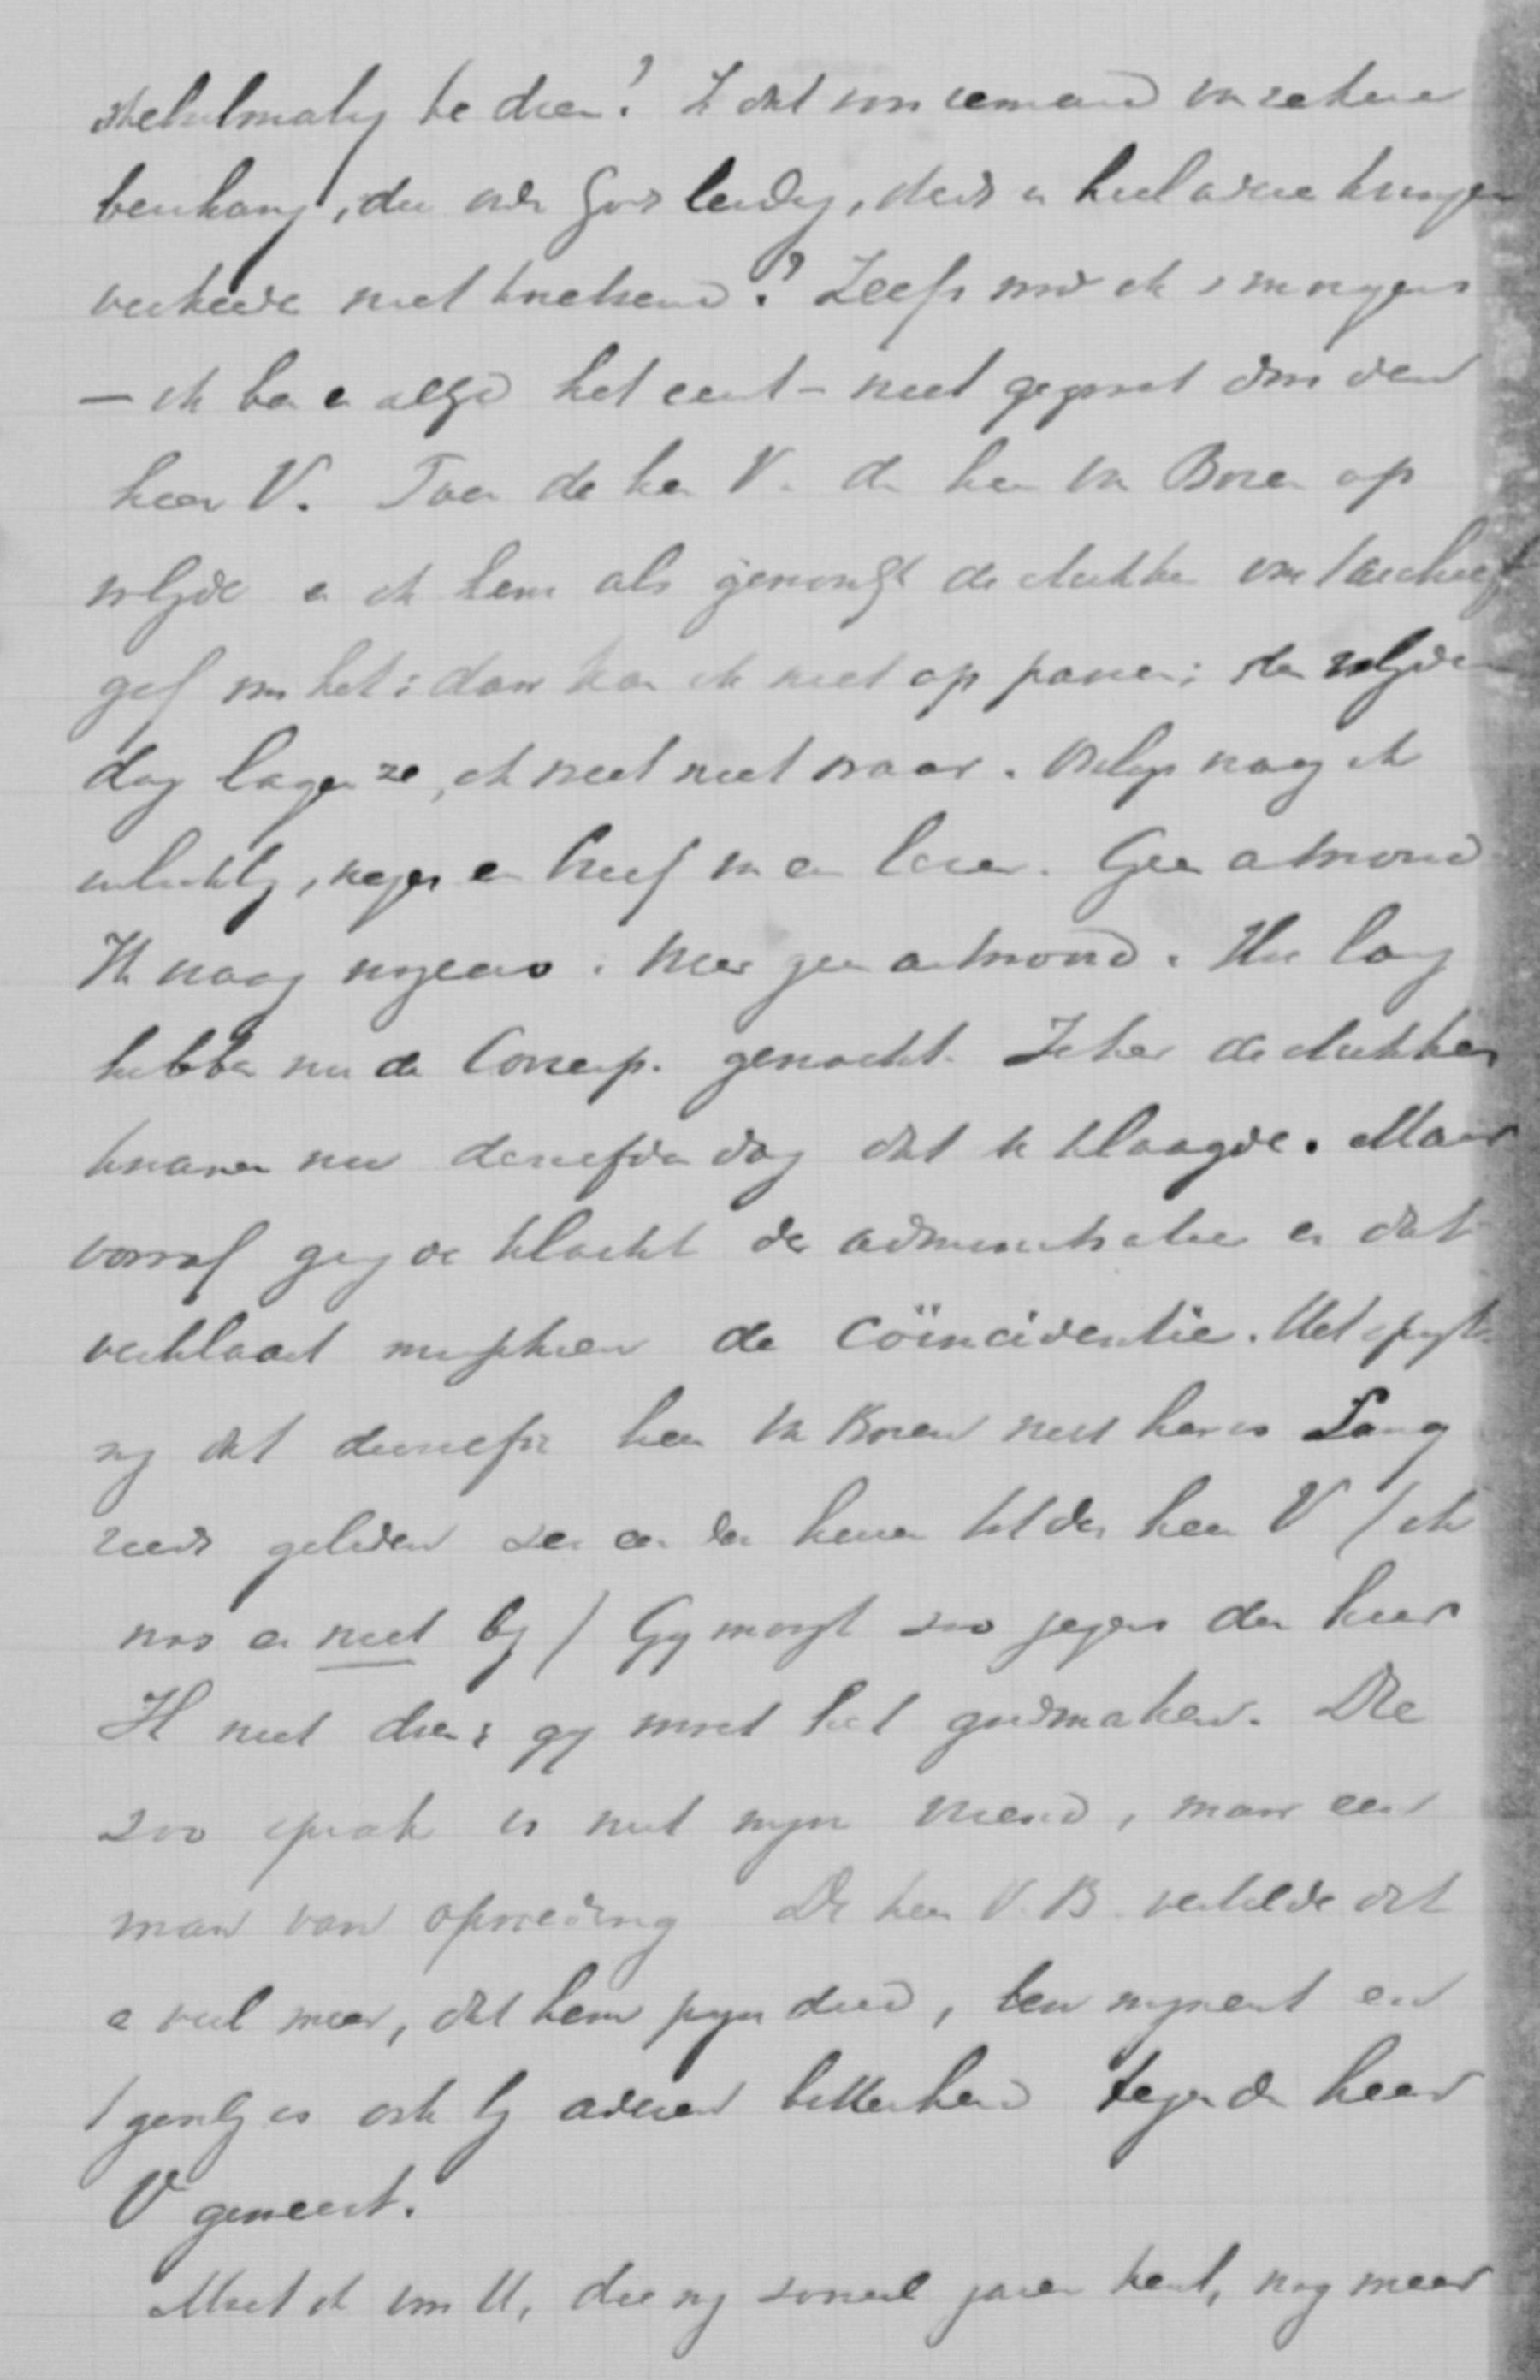 te doen? Is dat voor iemand van zekere
, die ook Gods leiding, deed in heel andere kringen
verkeerde niet knetterend? Zelfs word ik 's morgens
– ik ben er altijd het eerst – niet gegroet door den
heer V. Toen de heer V. den heer van Boven op
volgde en ik hem als gewoonlijk de stukken van
gaf was het: daar kan ik niet op passen; den volgden
dag lagen ze, ik weet niet waar. Onlangs vraag ik
, wegens een brief van een lezer. Geen antwoord
Ik vraag nogeens. Weer geen antwoord. Hoe lang
hebben nu de Corresp. gewacht. Zeker de stukken
kwamen nu denzelfden dag dat ik klaagde. Maar
vooraf ging de klacht der administratie en dat
verklaart misschien de coïncidentie. Het spijt
mij dat dienzelfde heer van Boven niet hier is. Lang
reeds geleden zei een der heeren tot den heer V / ik
was er niet bij / Gij moogt zoo jegens den heer
H niet doen; gij moet het goedmaken. Die
zoo sprak is niet mijn vriend, maar een
man van opvoeding. De heer V. B. vertelde dat
en veel meer, dat hem pijn deed, ten mijnent en
tgeen is ook bij anderen bitterheid tegen den heer
V geweest.
Moet ik van U, die mij zooveel jaren kent, nog meer